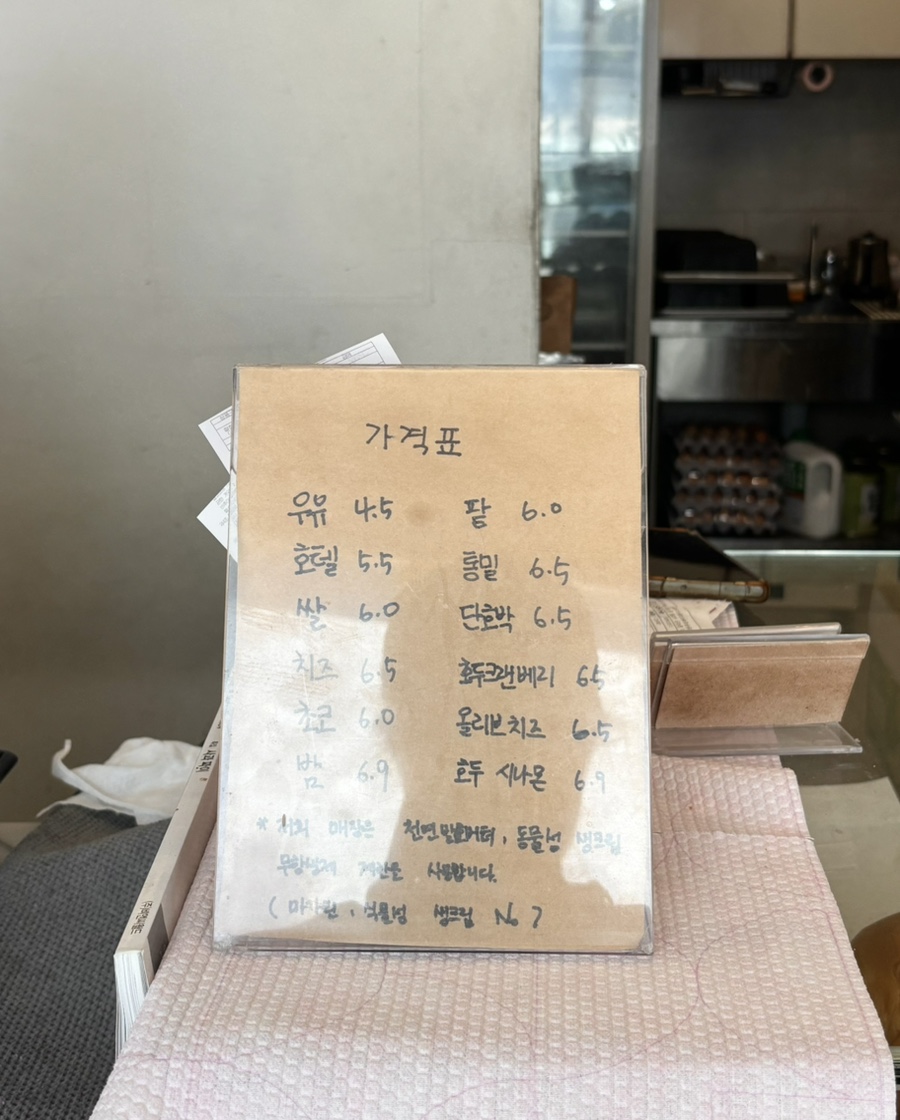 가격표
우유 4.5 팥 6.0
호텔 5.5 통밀 6.5
쌀 6.0 단호박 6.5
치즈 6.5 호두크랜베리 65
초코 6.0 올리브치즈 6.5
밤 6.9 호두 시나몬 6.9
* 저희 매장은 천연발효버터, 동물성 생크림
무항생제 계란을 사용합니다.
( 마가린, 식물성 생크림 No )